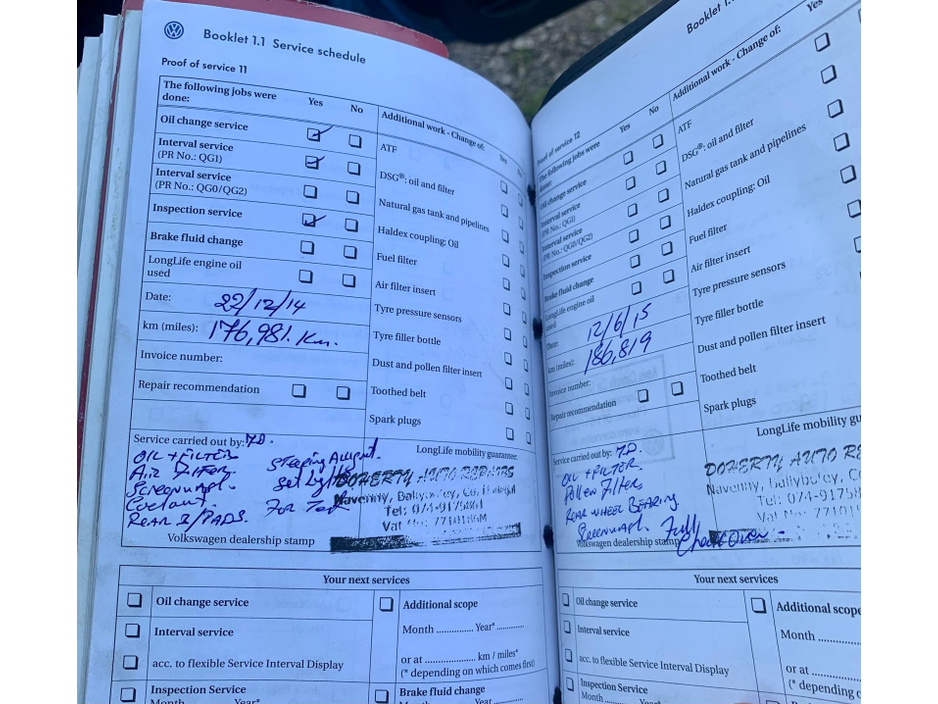 Booklet 1.1 Service schedule
Proof of service 11
The following jobs were done:
Yes No
Oil change service
Interval service
(PR No.: QG1)
Interval service
(PR No.: QG0/QG2)
Inspection service
Brake fluid change
LongLife engine oil
used
Date: 22/12/14
km (miles): 176,981. Km.
Invoice number:
Repair recommendation
Additional work - Change of: Yes
ATF
DSG®: oil and filter
Natural gas tank and pipelines
Haldex coupling: Oil
Fuel filter
Air filter insert
Tyre pressure sensors
Tyre filler bottle
Dust and pollen filter insert
Toothed belt
Spark plugs
Service carried out by: T.D.
OIL + FILTER
Air Filter.
Screenwash.
Coolant.
REAR B/PADS.
For Test
LongLife mobility guarantee:
DOHERTY AUTO REPAIRS
Navenny, Ballybofey, Co. Donegal
Tel: 074-9175861
Volkswagen dealership stamp
Your next services
Oil change service
Interval service
acc. to flexible Service Interval Display
Inspection Service
Month Year*
Additional scope
Month .............. Year* ..........
or at ..................... km / miles*
(* depending on which comes first)
Brake fluid change
Booklet 1.1
Proof of service 12
The following jobs were
done:
Yes No
Oil change service
Interval service
(PR No.: QG1)
Interval service
(PR No.: QG0/QG2)
Inspection service
Brake fluid change
LongLife engine oil
used
Date: 12/6/15
km (miles): 186,819
Invoice number:
Repair recommendation
Additional work - Change of: Yes
ATF
DSG®: oil and filter
Natural gas tank and pipelines
Haldex coupling: Oil
Fuel filter
Air filter insert
Tyre pressure sensors
Tyre filler bottle
Dust and pollen filter insert
Toothed belt
Spark plugs
Service carried out by: T.D.
OIL + FILTER
Pollen Filter
REAR WHEEL BEARING
Screenwash. Full
Check Over.
LongLife mobility guar
DOHERTY AUTO RE
Navenny, Ballybofey
Tel: 074-91758
Volkswagen dealership stamp
Your next services
Oil change service
Interval service
acc. to flexible Service Interval Display
Inspection Service
Additional scope
Month ..............
or at ..............
(* depending o